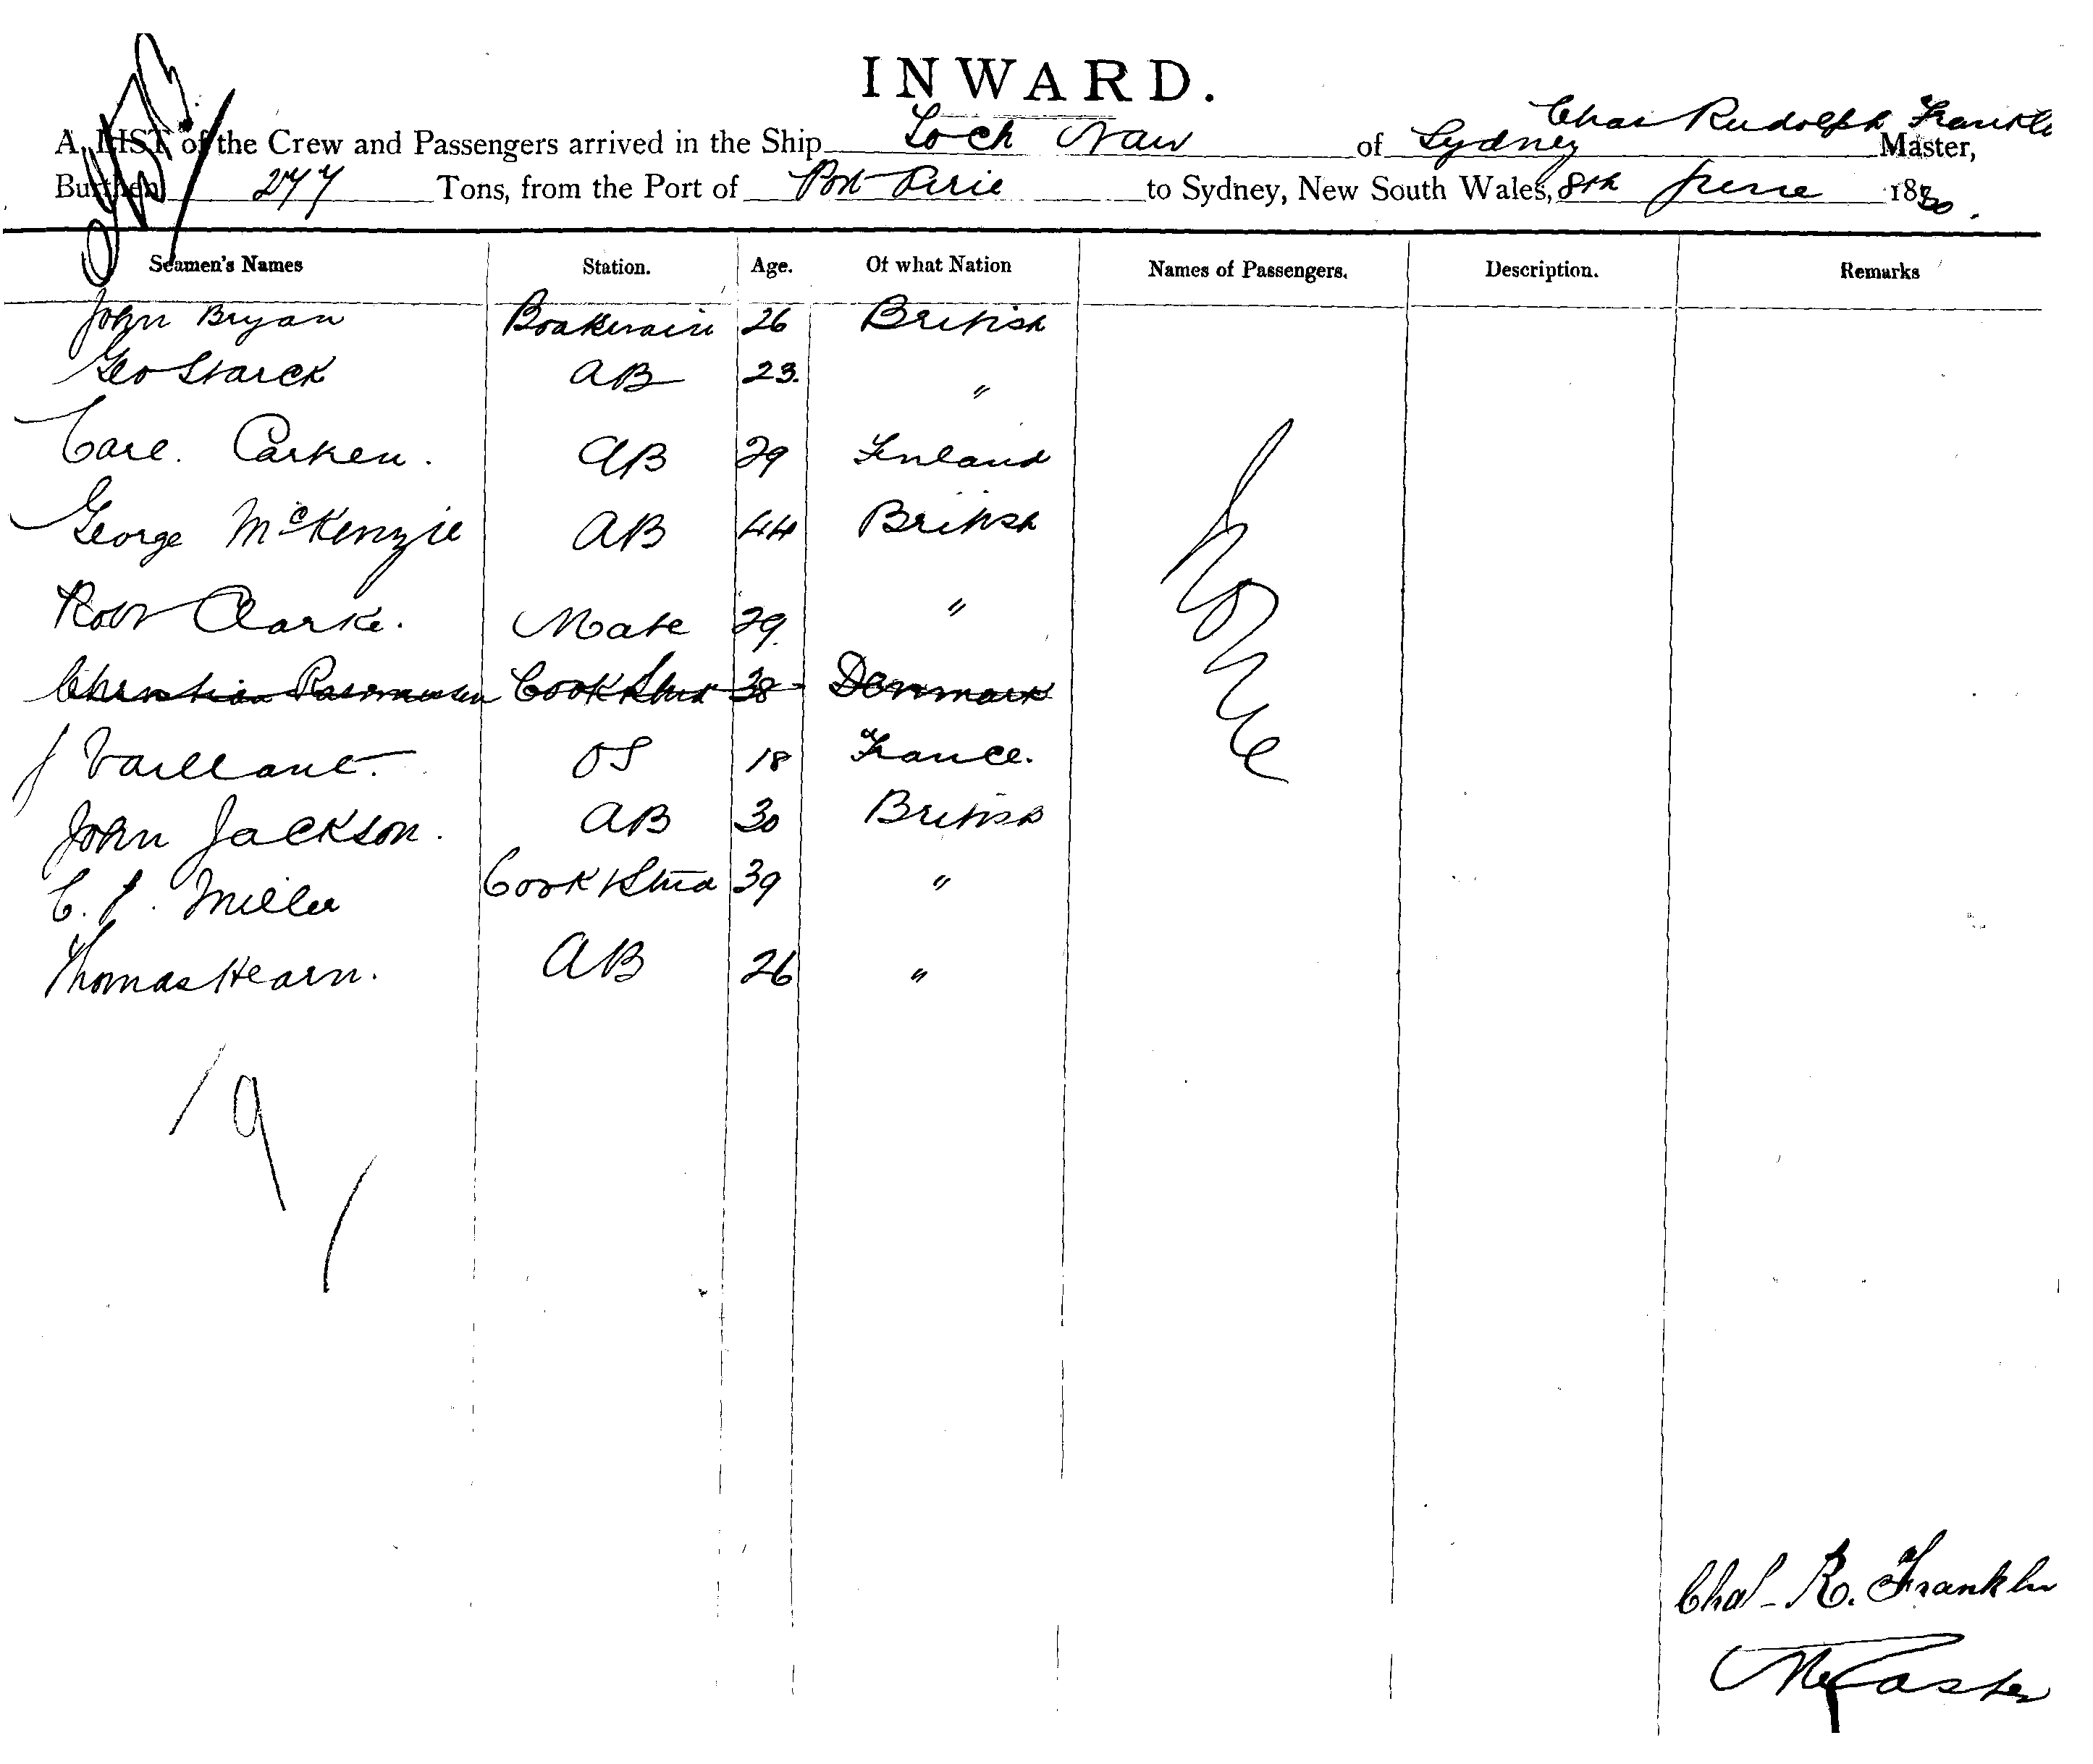 INWARD.
Chas Rudolph Franklin
A LIST of the Crew and Passengers arrived in the Ship Loch Naw of Sydney Master,
Burthen 277 Tons, from the Port of Port Pirie to Sydney, New South Wales, 8th June 18
Seamen's Names Station. Age. Of what Nation Names of Passengers. Description. Remarks
John Bryan 26 British
Geo Starck AB 23. "
Carl. AB 29 Finland
George McKenzie AB 44 British
Robt Clarke. Mate 29. "
Christian Rasmussen Cook & Stwd 38 Denmark
J Vaillant. OS 18 France.
John Jackson. AB 30 British
C. J. Miller Cook & Stwd 39 "
Thomas Hearn. AB 26 "
None
9
Chas R. Franklin
Master